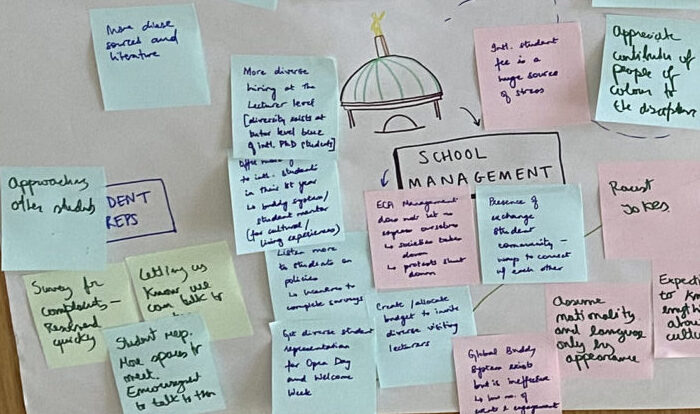 More diverse
sources and
literature
More diverse
hiring at the
Lecturer level
[diversity exists at
tutor level bcuz
of Intl. PhD students]
to intl. students
in their 1st year
↳ buddy system/
student mentor
(for cultural/
living experiences)
Listen more
to students on
policies
↳ incentive to
complete surveys
Get diverse student
representation
for Open Day
and Welcome
Week
Intl. student
fee is a
huge source
of stress
Appreciate
contribution of
people of
colour to
the discipline
SCHOOL
MANAGEMENT
ECA Management
does not let us
express ourselves
↳ societies taken
down
↳ protests shut
down
Presence of
exchange
student
community –
ways to connect
w/ each other
Racist
Jokes
Approaching
other students
DENT
REPS
Survey for
complaints –
Respond
quickly
Letting us
know we
can talk to
Student rep.
More spaces to
meet.
Encouragement
to talk to them
Create/allocate
budget to invite
diverse visiting
lecturers
Global Buddy
System exists
but is ineffective
↳ low no. of
events & engagement
Assume
nationality
and language
only by
appearance
to know